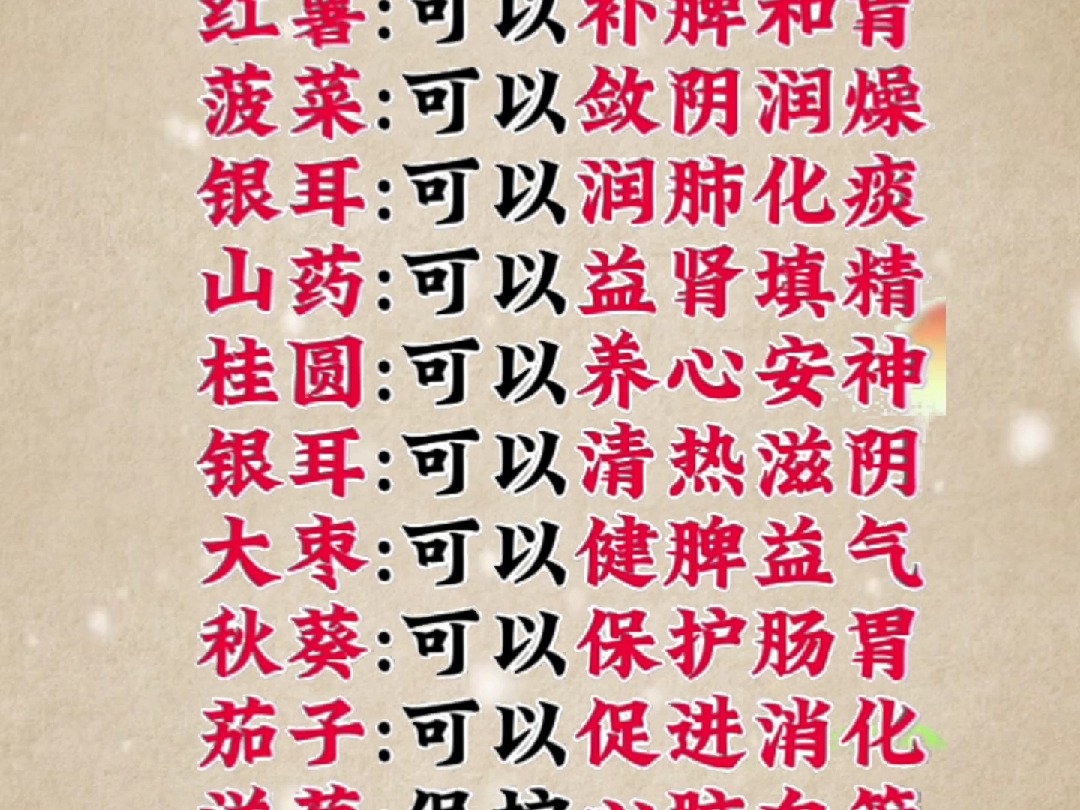 红薯:可以补脾和胃
菠菜:可以敛阴润燥
银耳:可以润肺化痰
山药:可以益肾填精
桂圆:可以养心安神
银耳:可以清热滋阴
大枣:可以健脾益气
秋葵:可以保护肠胃
茄子:可以促进消化